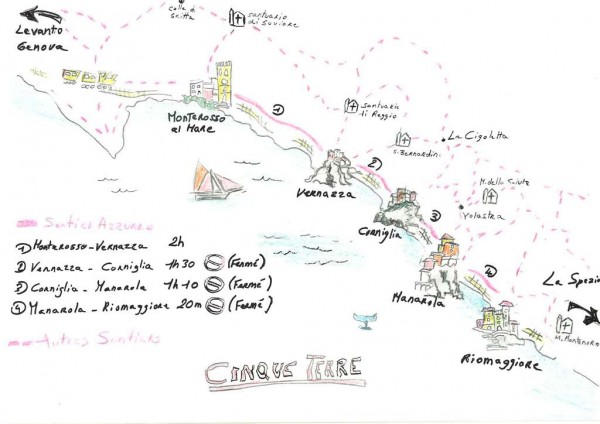 colla di
Gritta
santuario
di Soviore
Levanto
Genova
Monterosso
al Mare
1
santuario
di Reggio
La Cigoletta
S. Bernardino
Vernazza
2
M. della Salute
Volastra
Corniglia
3
Manarola
4
La Spezia
M. Montenero
Riomaggiore
Sentier Azzurro
1 Monterosso-Vernazza 2h
2 Vernazza - Corniglia 1h30 (Fermé)
3 Corniglia - Manarola 1h10 (Fermé)
4 Manarola - Riomaggiore 20m (Fermé)
Autres Sentiers
CINQUE TERRE